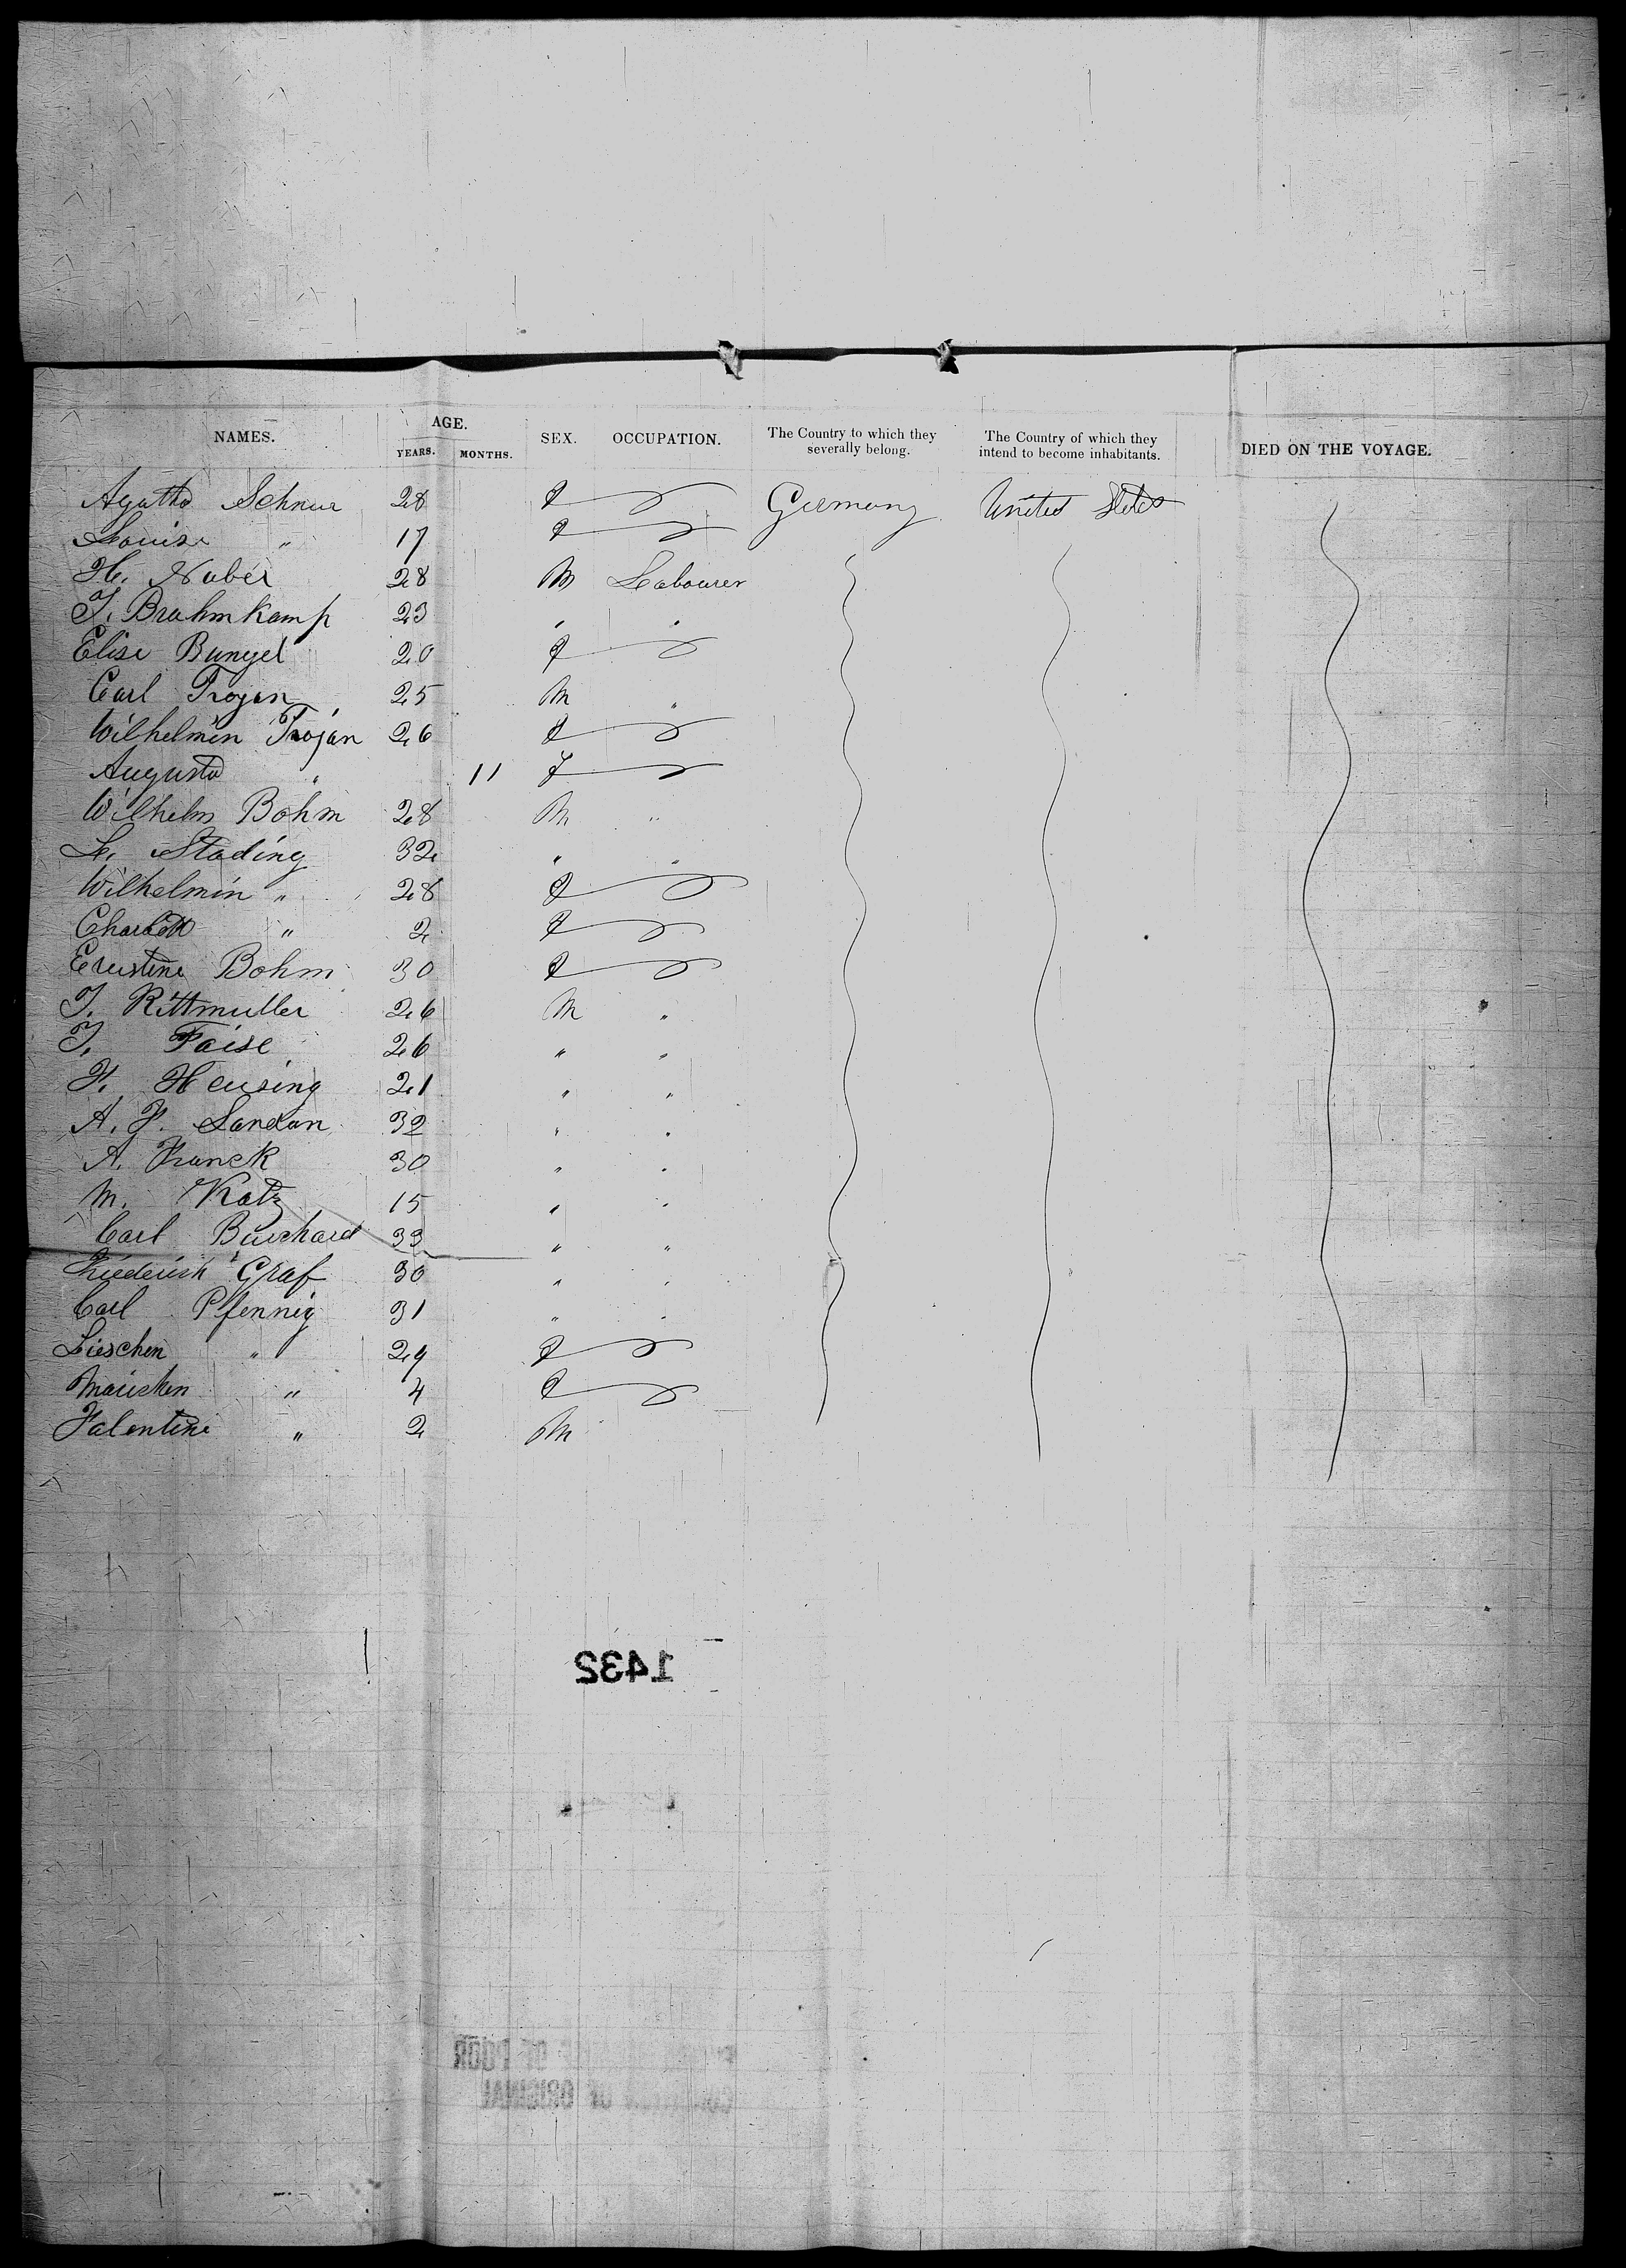 NAMES. AGE. YEARS. MONTHS. SEX. OCCUPATION. The Country to which they severally belong. The Country of which they intend to become inhabitants. DIED ON THE VOYAGE.
Agatha Schnur 28 f Germany United States
Louise " 17 f
H. Naber 28 M Labourer
J. Brahmkamp 23 " "
Elise Bungel 20 f
Carl Trojan 25 M "
Wilhelmin Trojan 26 f
Augusta " 11 f
Wilhelm Bohm 28 M "
L. Stading 32 " "
Wilhelmin " 28 f
Charlott " 2 f
Ernstine Bohm 30 f
J. Rittmuller 26 M "
J. Faise 26 " "
F. Heusing 21 " "
A. F. Sandan 32 " "
A. Franck 30 " "
M. Katz 15 " "
Carl Burchard 33 " "
Friederich Graf 30 " "
Carl Pfennig 31 " "
Lieschen " 29 f
Mariechen " 4 f
Falentine " 2 M
1432
OF POOR
OF ORIGINAL